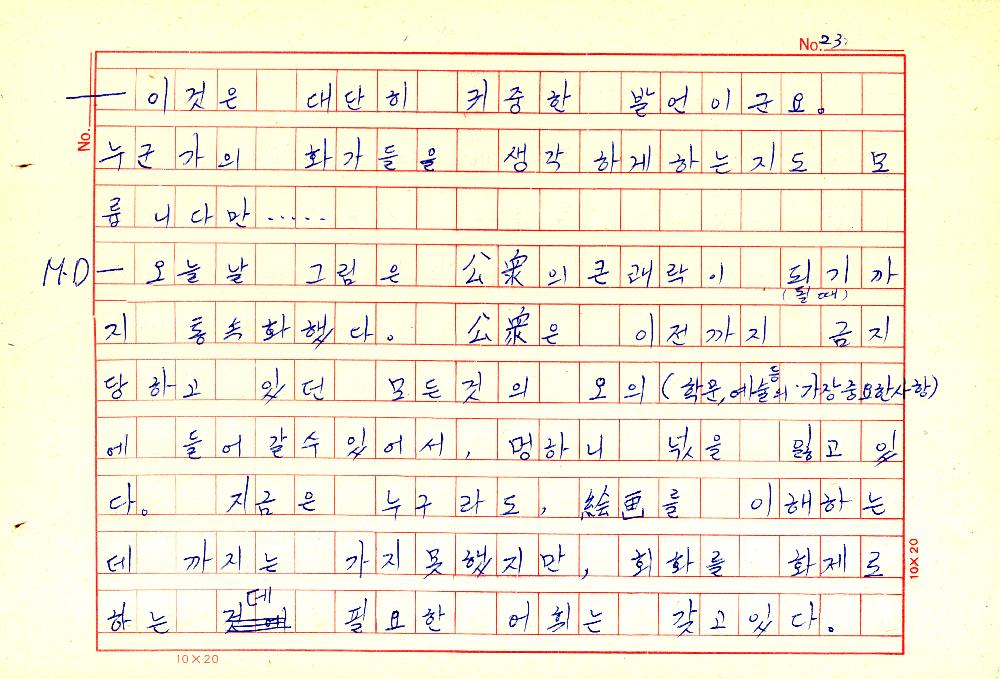 No. 23.
No.
— 이것은 대단히 커중한 발언이군요.
누군가의 화가들을 생각하게하는지도 모
릅니다만.....
M.D — 오늘날 그림은 公衆의큰쾌락이 되기까
(될 때)
지 통속화했다. 公衆은 이전까지 금지
당하고 있던 모든것의 오의(학문,예술등의·가장중요한사항)
에 들어갈수있어서, 멍하니 넋을 잃고 있
다. 지금은 누구라도, 絵画를 이해하는
데 까지는 가지못했지만, 회화를 화제로
하는 데 필요한 어휘는 갖고있다.
10×20
10×20